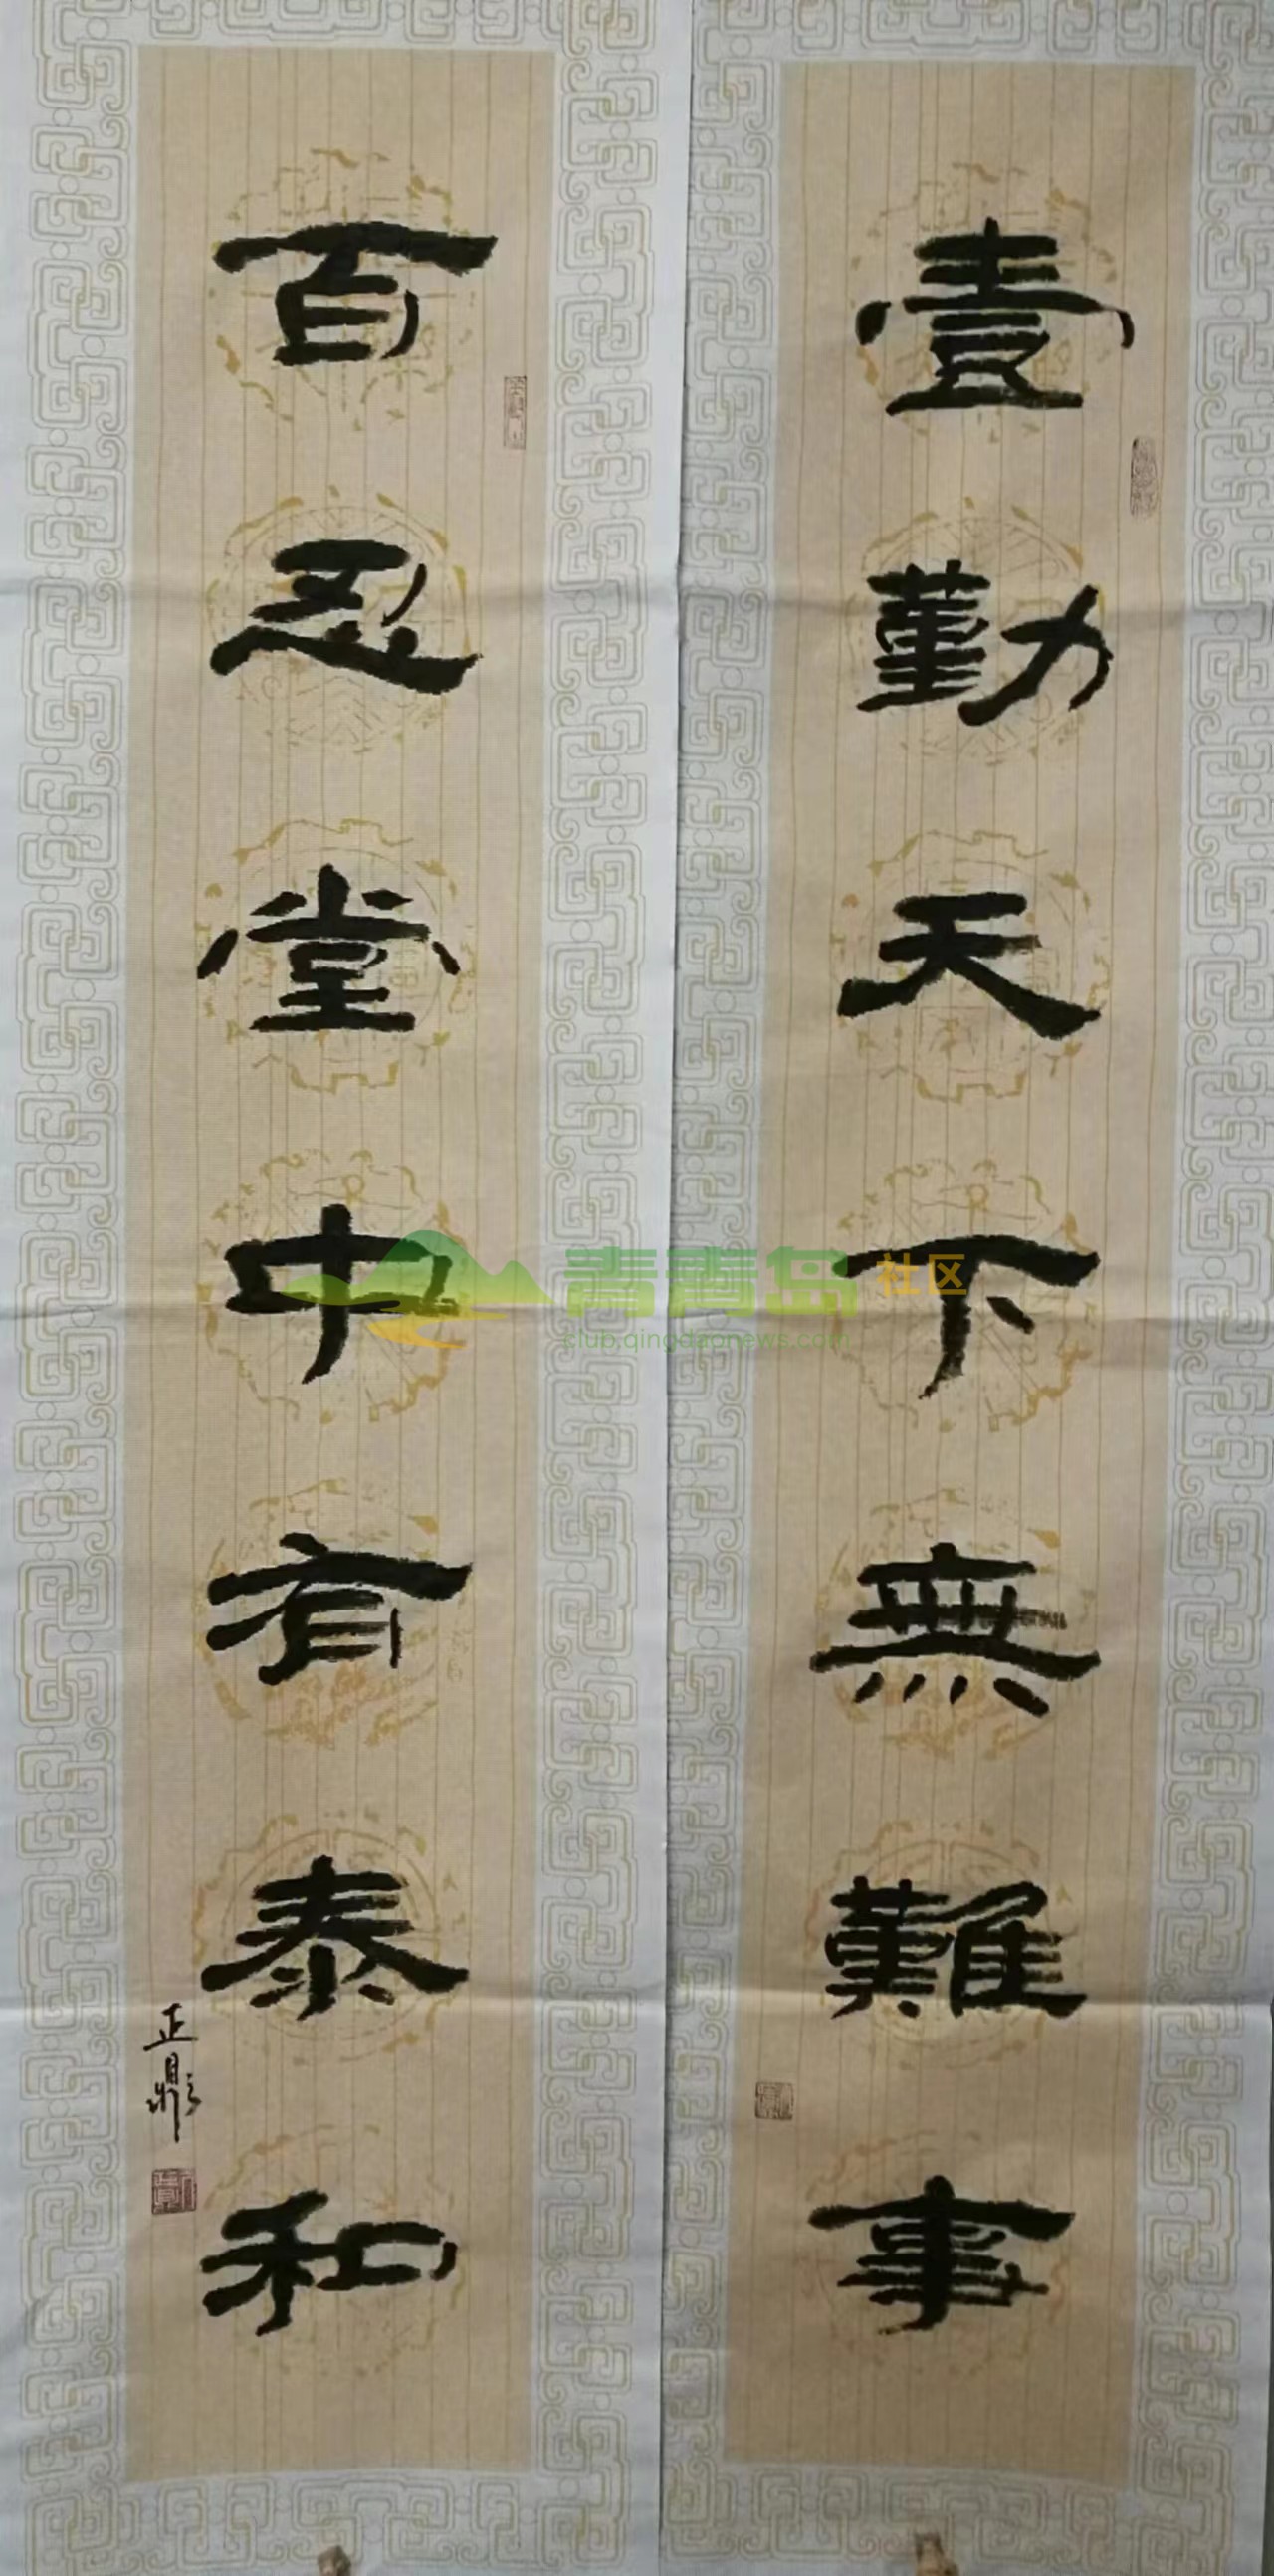 壹勤天下無難事
百忍堂中有泰和
正鼎
青青岛社区
club.qingdaonews.com